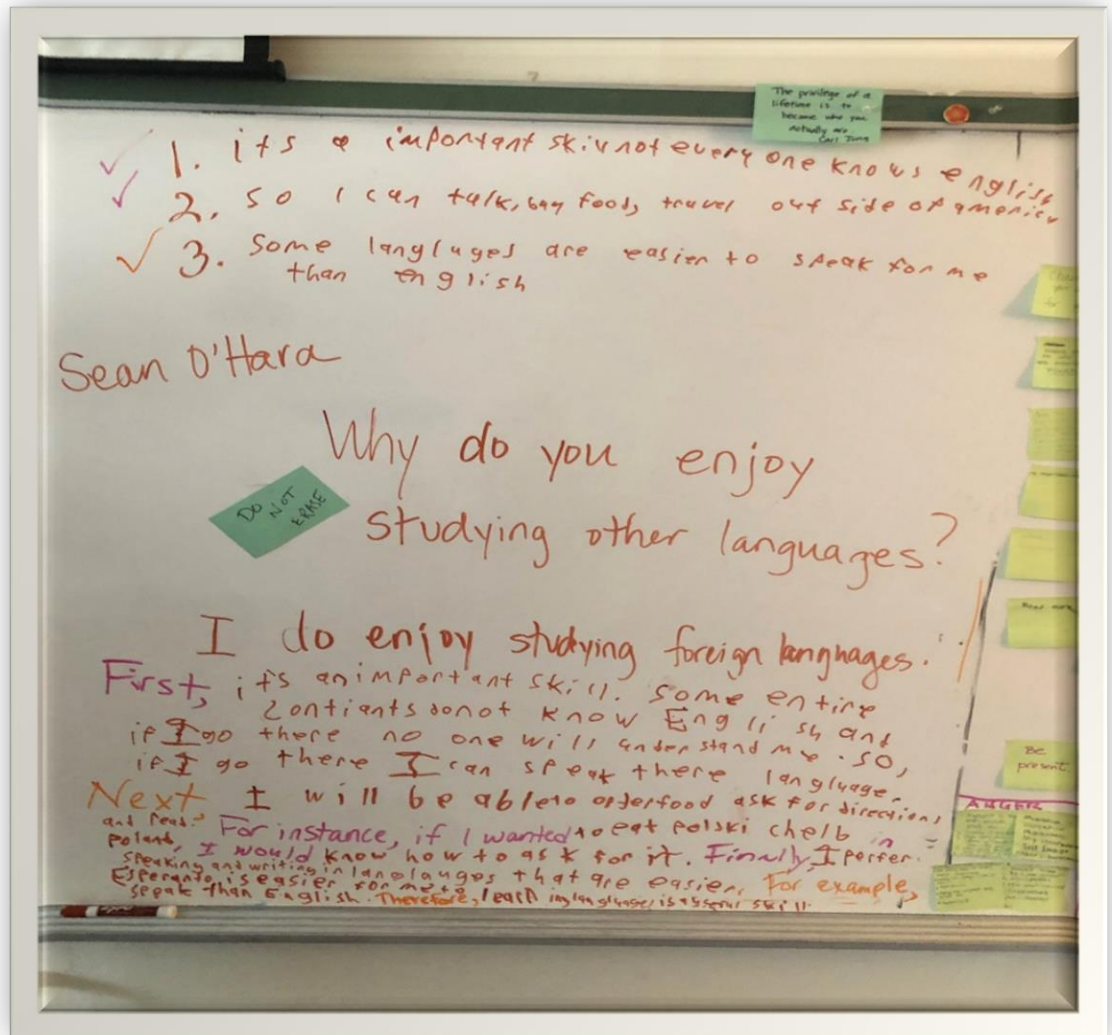 The privilege of a
lifetime is to
become who you
actually are
Carl Jung
1. its a important skill not every one knows english
2. so I can talk, buy food, travel out side of america
3. Some langluges are easier to speak for me
than english
Sean O'Hara
Why do you enjoy
DO NOT
ERASE
studying other languages?
I do enjoy studying foreign languages.
First, its an important skill. some entire
contiants do not know English and
if I go there no one will understand me. so,
if I go there I can speak there langluage.
Next I will be able to order food ask for directions
and read. For instance, if I wanted to eat polski chelb in
poland, I would know how to ask for it. Finally, I perfer
speaking and writing in langlauges that are easier. For example,
Esperanto is easier for me to
sepak than English. Therefore, learning langluages is useful skill.
Be
present
ANGER